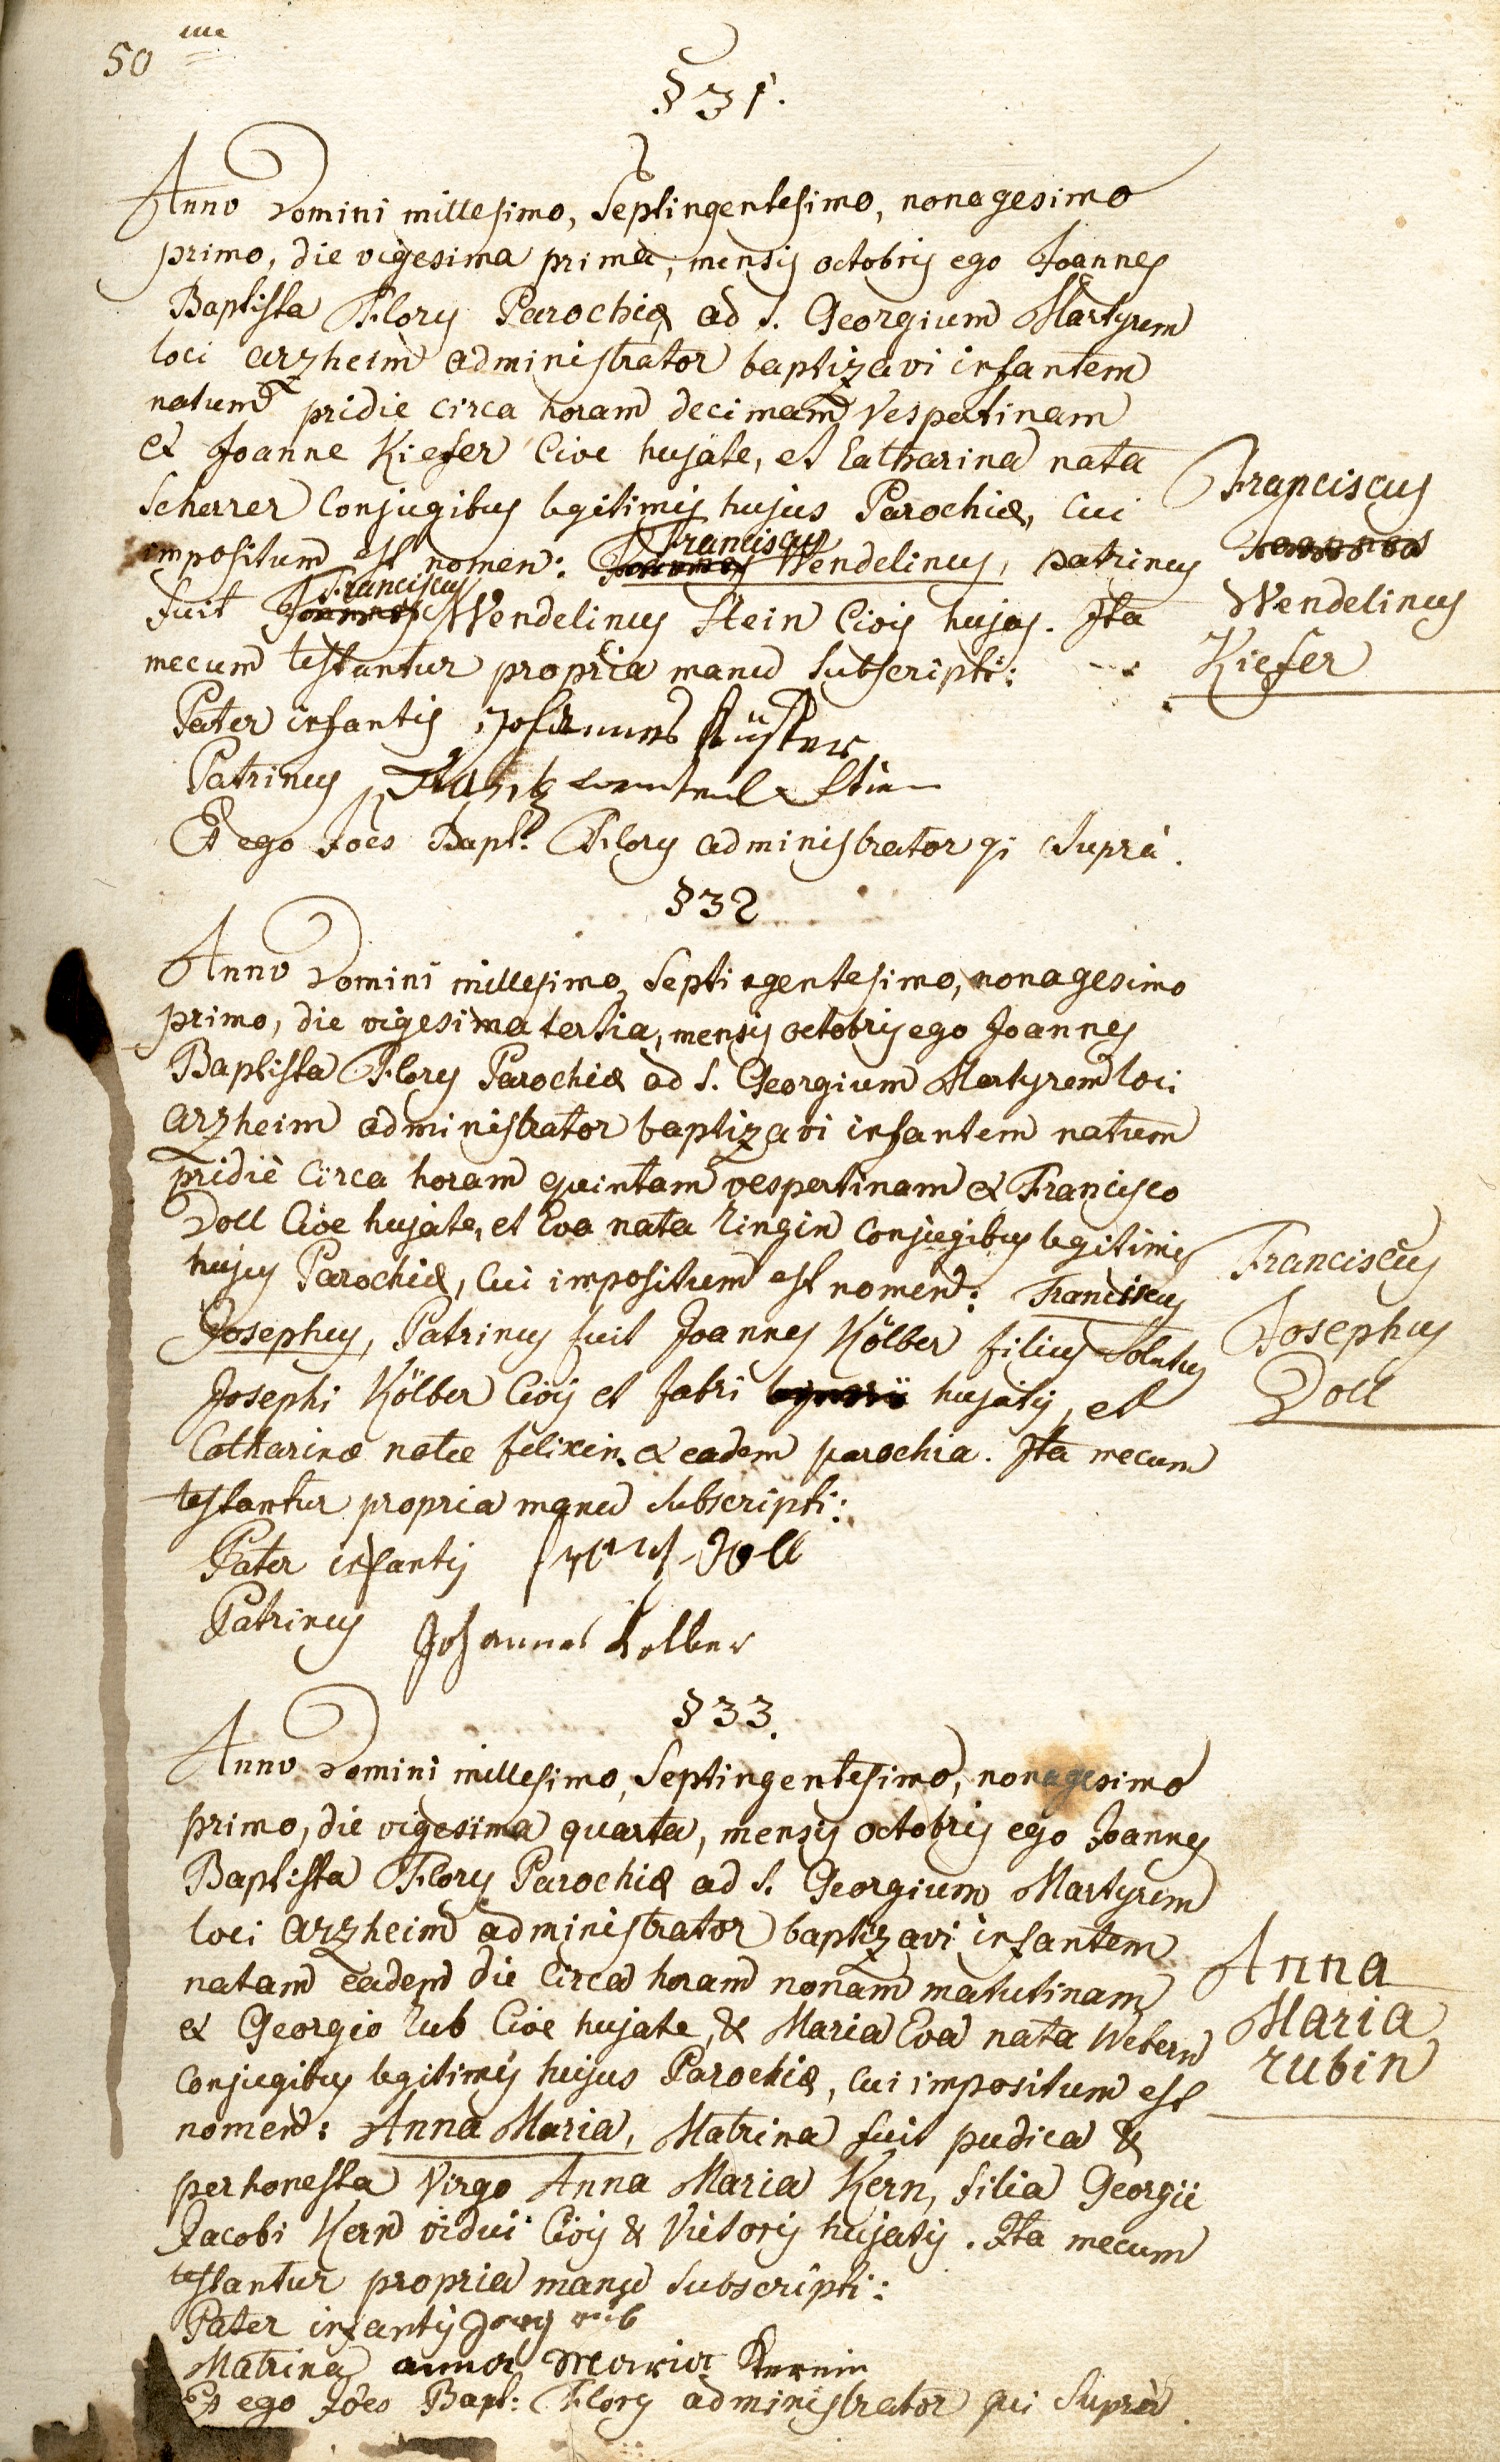 50 me
§ 31.
Anno Domini millesimo, Septingentesimo, nonagesimo
primo, die vigesima prima, mensis octobris ego Joannes
Baptista Flory Parochiæ ad S. Georgium Martyrem
loci arzheim administrator baptizavi infantem
natum pridie circa horam decimam Vespertinam
ex Joanne Kiefer Cive hujate, et Catharina nata
Scherrer Conjugibus legitimis hujus Parochiæ, Cui
impositum est nomen: Franciscus Wendelinus, patrinus
fuit Franciscus Wendelinus Stein Civis hujas. Ita
mecum testantur propria manu Subscripti:
Franciscus
Wendelinus
Kiefer
Pater infantis Johannes
Patrinus Frantz
Et ego Joes Bapt. Flory administrator qi Suprà.
§ 32
Anno Domini millesimo, Septingentesimo, nonagesimo
primo, die vigesima tertia, mensis octobris ego Joannes
Baptista Flory Parochiæ ad S. Georgium Martyrem loci
arzheim administrator baptizavi infantem natum
pridiè Circa horam quintam vespertinam ex Francisco
Doll Cive hujate, et Eva nata Ringin Conjugibus legitimis
hujus Parochiæ, Cui impositum est nomen: Franciscus
Josephus, Patrinus fuit Joannes Kölber filius Solutus
Josephi Kölber Civis et fabri hujatis, et
Catharinæ natæ felixin. ex eadem parochia. Ita mecum
testantur propria manu Subscripti:
Franciscus
Josephus
Doll
Pater infantis Doll
Patrinus Johannes Kolber
§ 33.
Anno Domini millesimo, Septingentesimo, nonagesimo
primo, die vigesima quarta, mensis octobris ego Joannes
Baptista Flory Parochiæ ad S. Georgium Martyrem
loci arzheim administrator baptizavi infantem
natam eadem die Circa horam nonam matutinam
ex Georgio Rub Cive hujate, & Maria Eva nata Webern
Conjugibus legitimis hujus Parochiæ, Cui impositum est
nomen: Anna Maria, Matrina fuit pudica &
perhonesta Virgo Anna Maria Kern, filia Georgii
Jacobi Kern vidui Civis & Vietoris hujatis. Ita mecum
testantur propria manu Subscripti:
Anna
Maria
rubin
Pater infantis Jorg rub
Matrina anna Maria Kernin
Et ego Joes Bapt: Flory administrator qui Suprà.